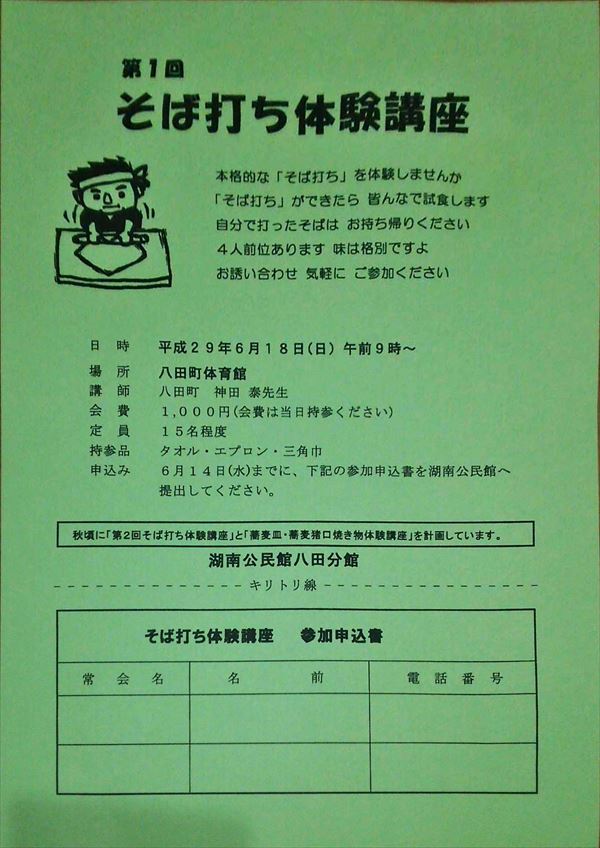 第1回
そば打ち体験講座
本格的な「そば打ち」を体験しませんか
「そば打ち」ができたら 皆んなで試食します
自分で打ったそばは お持ち帰りください
４人前位あります 味は格別ですよ
お誘い合わせ 気軽に ご参加ください
日　時　平成２９年６月１８日(日) 午前９時～
場　所　八田町体育館
講　師　八田町　神田 泰先生
会　費　１,０００円(会費は当日持参ください)
定　員　１５名程度
持参品　タオル・エプロン・三角巾
申込み　６月１４日(水)までに、下記の参加申込書を湖南公民館へ
提出してください。
秋頃に「第２回そば打ち体験講座」と「蕎麦皿・蕎麦猪口焼き物体験講座」を計画しています。
湖南公民館八田分館
キリトリ線
そば打ち体験講座　参加申込書
常　会　名　名　前　電　話　番　号